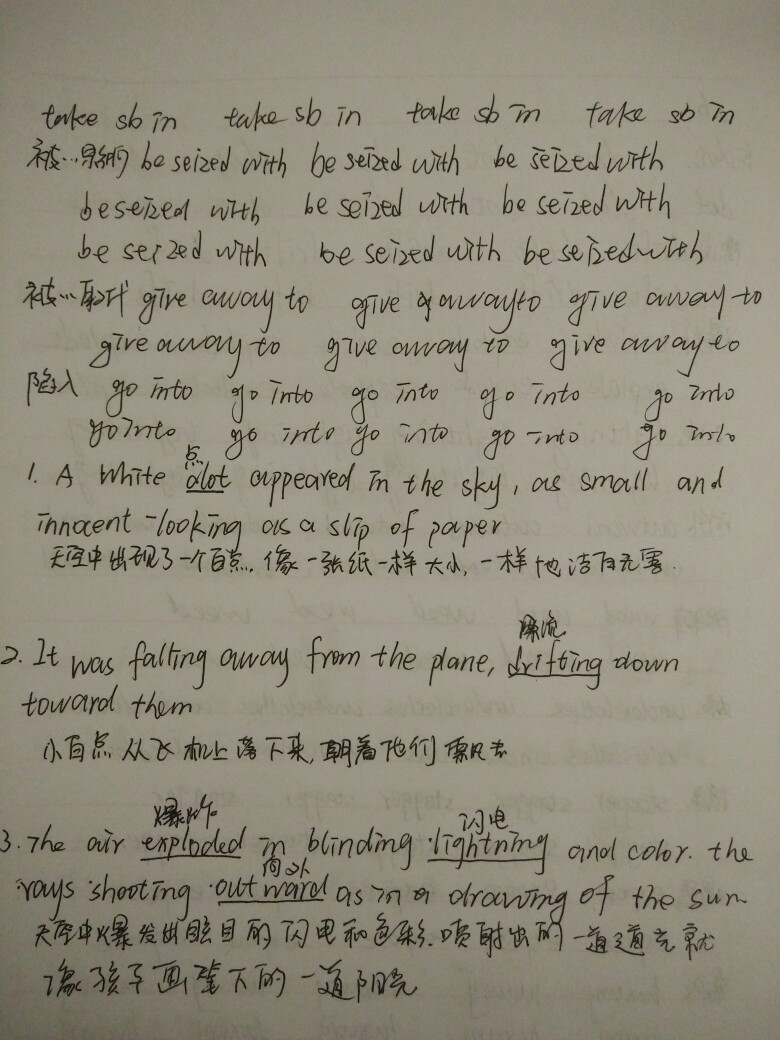 take sb in take sb in take sb in take sb in
被… be seized with be seized with be seized with
be seized with be seized with be seized with
be seized with be seized with be seized with
被…取代 give away to give away to give away to
give away to give away to give away to
陷入 go into go into go into go into go into
go into go into go into go into go into
点
1. A white dot appeared in the sky, as small and
innocent-looking as a slip of paper
天空中出现了一个白点,像一张纸一样大小,一样地洁白无害.
漂流
2. It was falling away from the plane, drifting down
toward them
小白点从飞机上落下来,朝着他们飘去
爆炸 闪电
3. The air exploded in blinding lightning and color. the
向外
rays shooting outward as in a drawing of the sun
天空中爆发出眩目的闪电和色彩.喷射出的一道道光就
像孩子画笔下的一道阳光